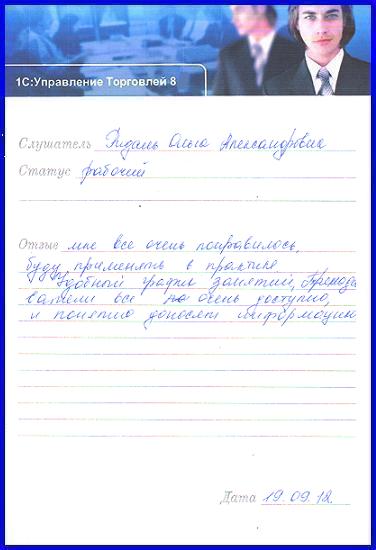 1С:Управление Торговлей 8
Слушатель Ридаль Ольга Александровна
Статус рабочий
Отзыв мне все очень понравилось,
буду применять в практике
Удобный график занятий, Препода
ватели все на очень доступно,
и понятно доносят информацию
Дата 19.09.12